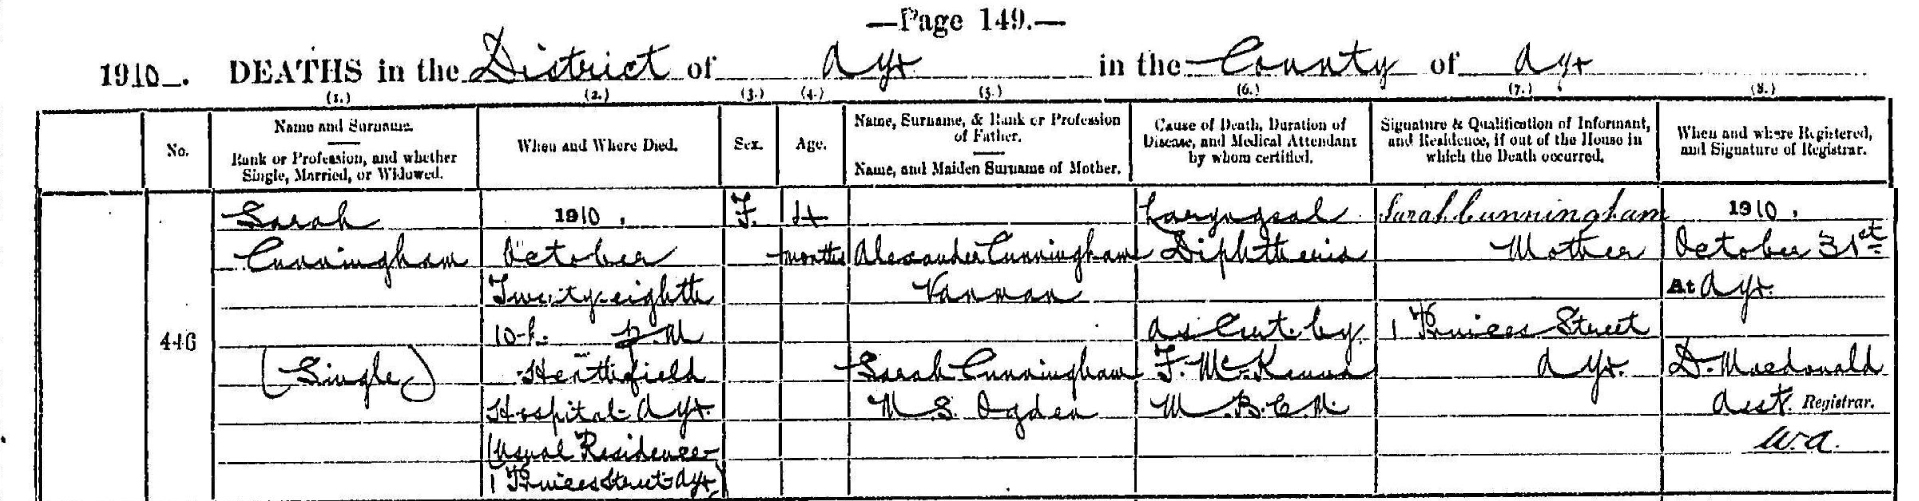 —Page 149.—
1910. DEATHS in the District of Ayr in the County of Ayr
(1.) (2.) (3.) (4.) (5.) (6.) (7.) (8.)
No.
Name and Surname.
Rank or Profession, and whether
Single, Married, or Widowed.
When and Where Died.
Sex.
Age.
Name, Surname, & Rank or Profession
of Father.
Name, and Maiden Surname of Mother.
Cause of Death, Duration of
Disease, and Medical Attendant
by whom certified.
Signature & Qualification of Informant,
and Residence, if out of the House in
which the Death occurred.
When and where Registered,
and Signature of Registrar.
446
Sarah
Cunningham
(Single)
1910,
October
Twenty-eighth
10h. p.M
Heathfield
Hospital Ayr.
(Usual Residence
Street Ayr)
F.
4
months
Alexander Cunningham
Vanman
Sarah Cunningham
M.S. Ogden
Laryngeal
Diphtheria
As Cert. by
F. McKenna
M.B.C.M.
Sarah Cunningham
Mother
Street
Ayr.
1910,
October 31st
At Ayr.
D. Macdonald
Asst. Registrar.
W.A.